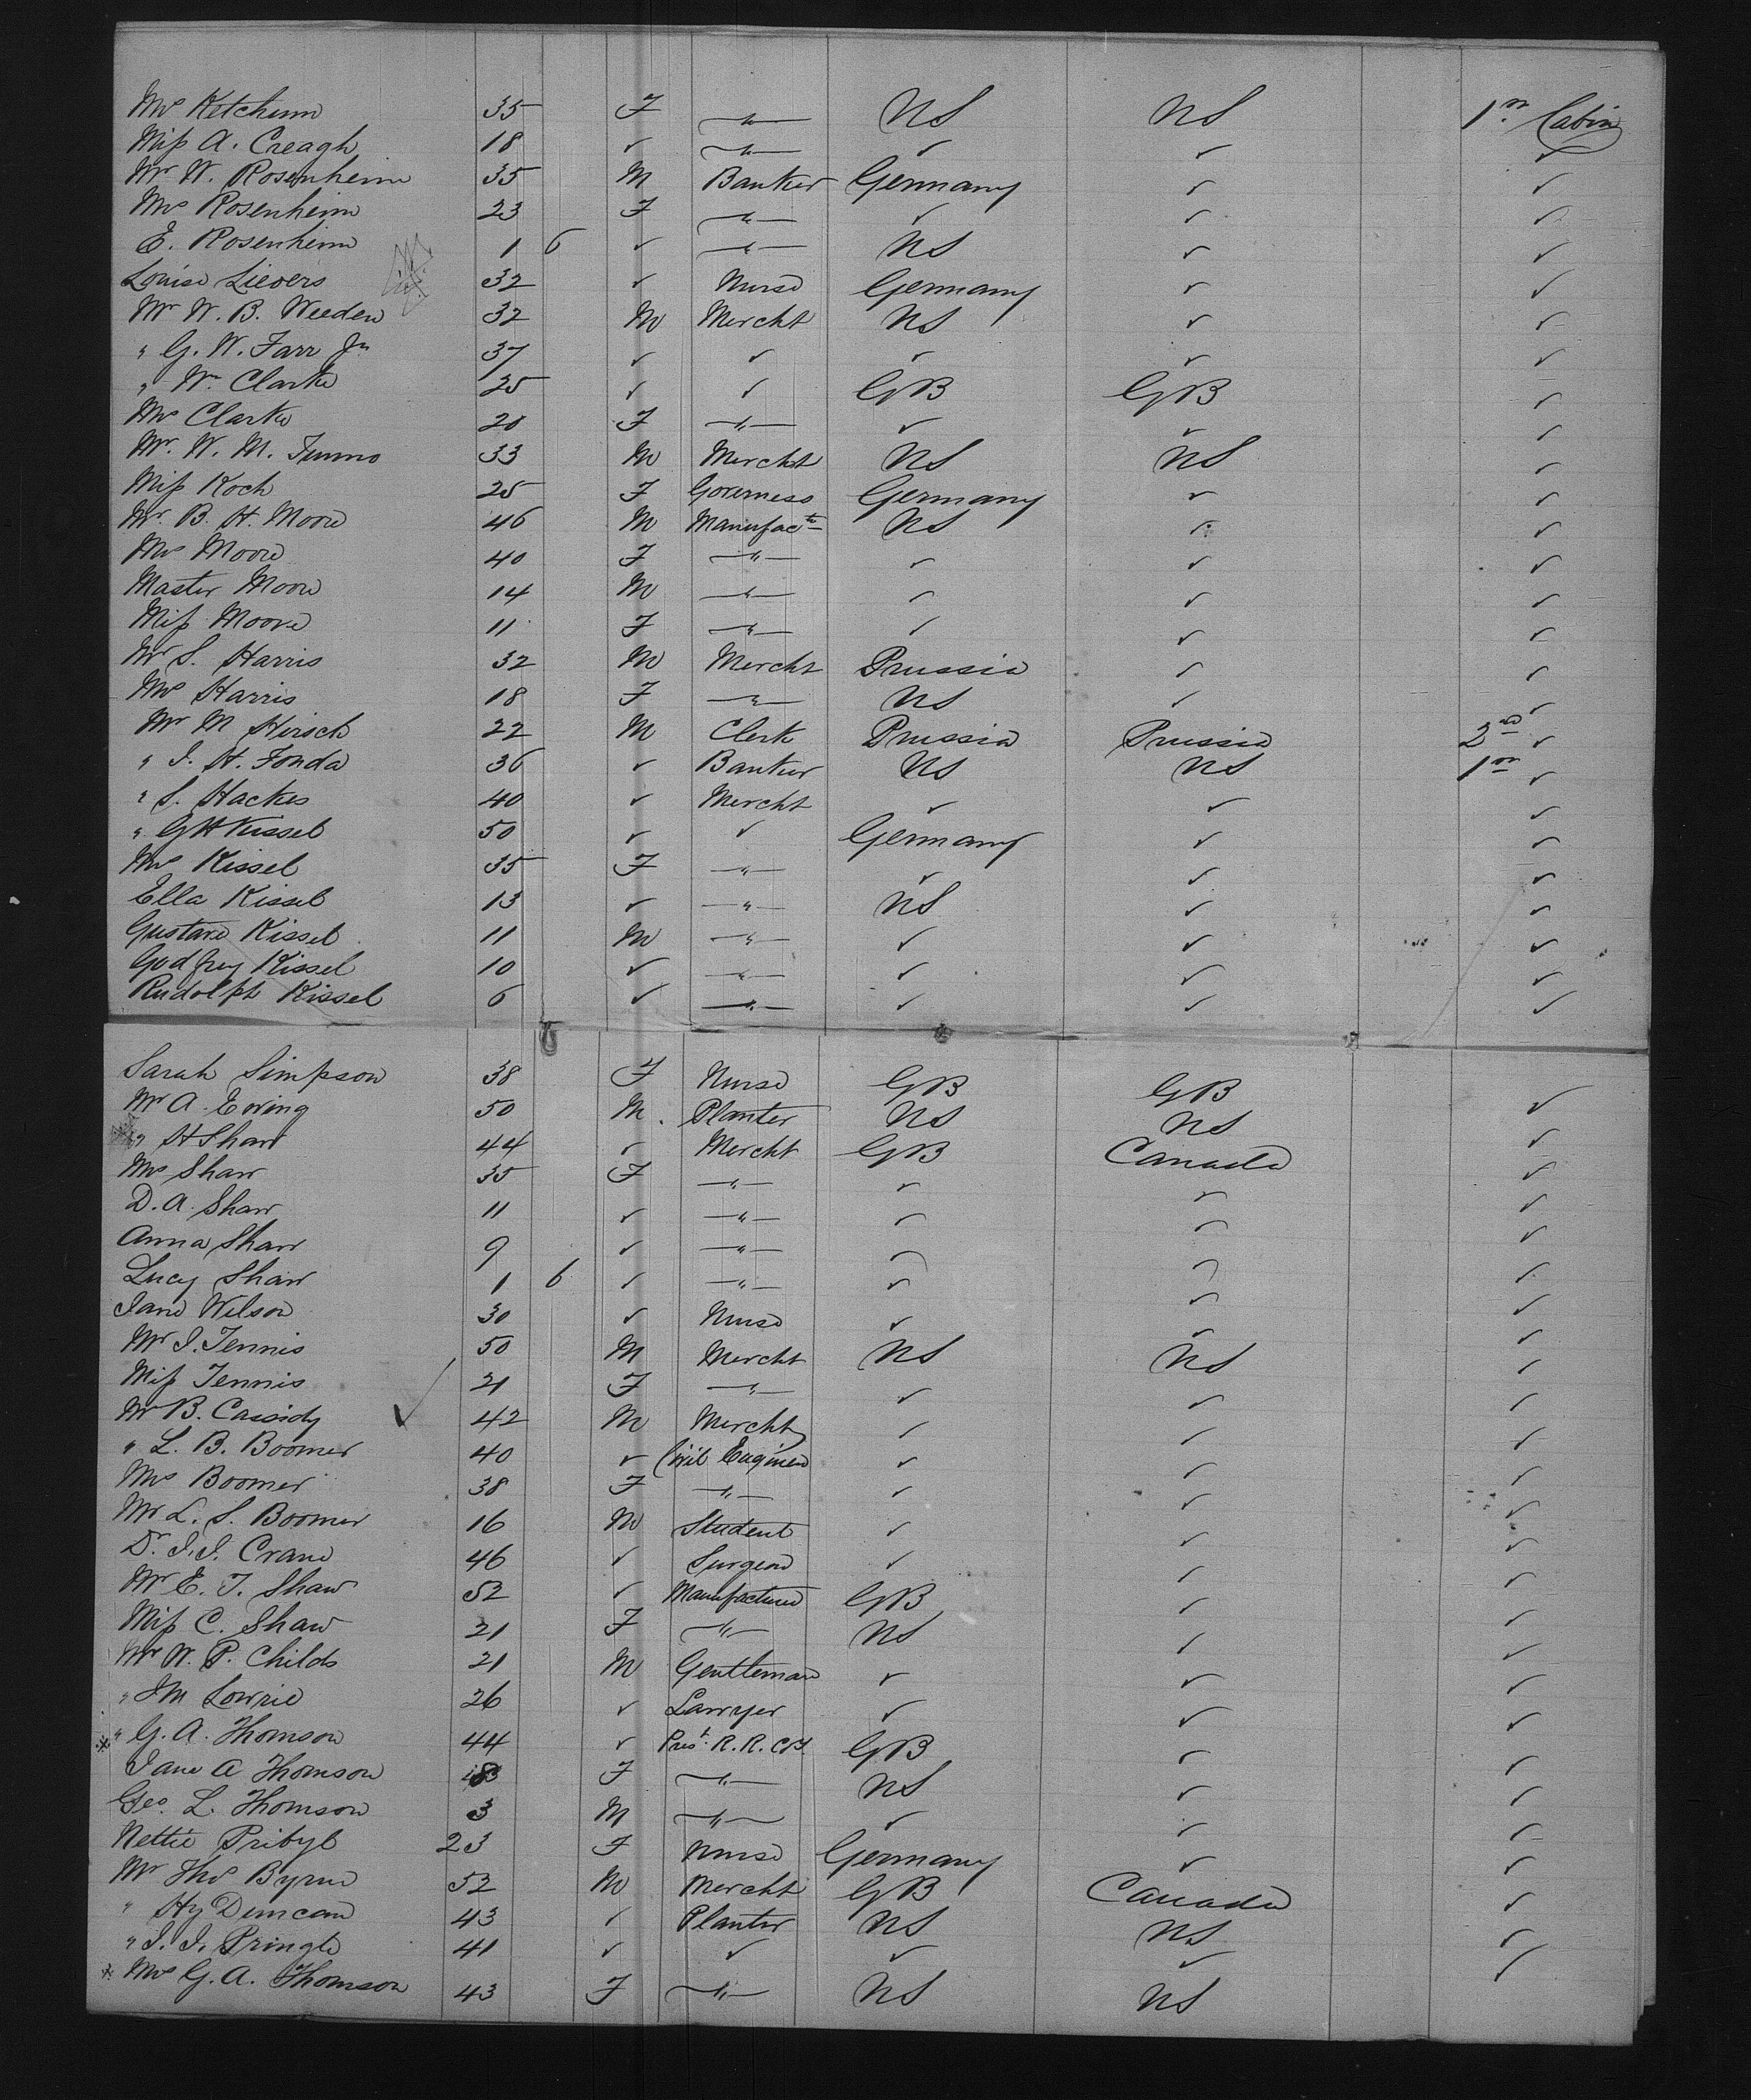 Mrs Ketchum 35 F —"— US US 1st Cabin
Miss A. Creagh 18 ✓ —"— ✓ ✓ ✓
Mr W. Rosenheim 35 M Banker Germany ✓ ✓
Mrs Rosenheim 23 F —"— ✓ ✓ ✓
E. Rosenheim 1 6 ✓ —"— US ✓ ✓
Louise Lievers 32 ✓ Nurse Germany ✓ ✓
Mr W. B. Weeden 32 M Mercht US ✓ ✓
" G. W. Farr Jr 37 ✓ ✓ ✓ ✓ ✓
" Wm Clarke 25 ✓ ✓ GB GB ✓
Mrs Clarke 20 F —"— ✓ ✓ ✓
Mr. W. M. 33 M Mercht US US ✓
Miss Koch 25 F Governess Germany ✓ ✓
Mr. B. H. Moore 46 M Manufactr US ✓ ✓
Mrs Moore 40 F —"— ✓ ✓ ✓
Master Moore 14 M —"— ✓ ✓ ✓
Miss Moore 11 F —"— ✓ ✓ ✓
Mr S. Harris 32 M Mercht Prussia ✓ ✓
Mrs Harris 18 F —"— US ✓ ✓
Mr M Hirsch 22 M Clerk Prussia Prussia 2nd ✓
" J. H. Fonda 36 ✓ Banker US US 1st ✓
" S. Hackes 40 ✓ Mercht ✓ ✓ ✓
" G H Kissel 50 ✓ ✓ Germany ✓ ✓
Mrs Kissel 35 F —"— ✓ ✓ ✓
Ella Kissel 13 ✓ —"— US ✓ ✓
Gustave Kissel 11 M —"— ✓ ✓ ✓
Godfrey Kissel 10 ✓ —"— ✓ ✓ ✓
Rudolph Kissel 6 ✓ —"— ✓ ✓ ✓
Sarah Simpson 38 F Nurse GB GB ✓
Mr A. Ewing 50 M. Planter US US ✓
" H Shaw 44 ✓ Mercht GB Canada ✓
Mrs Shaw 35 F —"— ✓ ✓ ✓
D. A. Shaw 11 ✓ —"— ✓ ✓ ✓
Anna Shaw 9 ✓ —"— ✓ ✓ ✓
Lucy Shaw 1 6 ✓ —"— ✓ ✓ ✓
Jane Wilson 30 ✓ Nurse ✓ ✓ ✓
Mr J. Tennis 50 M Mercht US US ✓
Miss Tennis 21 F —"— ✓ ✓ ✓
Mr B. Cassidy ✓ 42 M Mercht ✓ ✓ ✓
" L. B. Boomer 40 ✓ Civil Engineer ✓ ✓ ✓
Mrs Boomer 38 F —"— ✓ ✓ ✓
Mr L. S. Boomer 16 M Student ✓ ✓ ✓
Dr. J. J. Crane 46 ✓ Surgeon ✓ ✓ ✓
Mr E. T. Shaw 52 ✓ Manufacturer GB ✓ ✓
Miss C. Shaw 21 F —"— US ✓ ✓
Mr W. P. Childs 21 M Gentleman ✓ ✓ ✓
" J M Lowrie 26 ✓ Lawyer ✓ ✓ ✓
* " G. A. Thomson 44 ✓ Prest. R. R. Coy. GB ✓ ✓
Jane A Thomson F —"— US ✓ ✓
Geo. L. Thomson 3 M —"— ✓ ✓ ✓
Nettie Pribyl 23 F Nurse Germany ✓ ✓
Mr Thos Byrne 52 M Mercht GB Canada ✓
" Hy Duncan 43 ✓ Planter US US ✓
" J. J. Pringle 41 ✓ ✓ ✓ ✓ ✓
* Mrs G. A. Thomson 43 F —"— US US